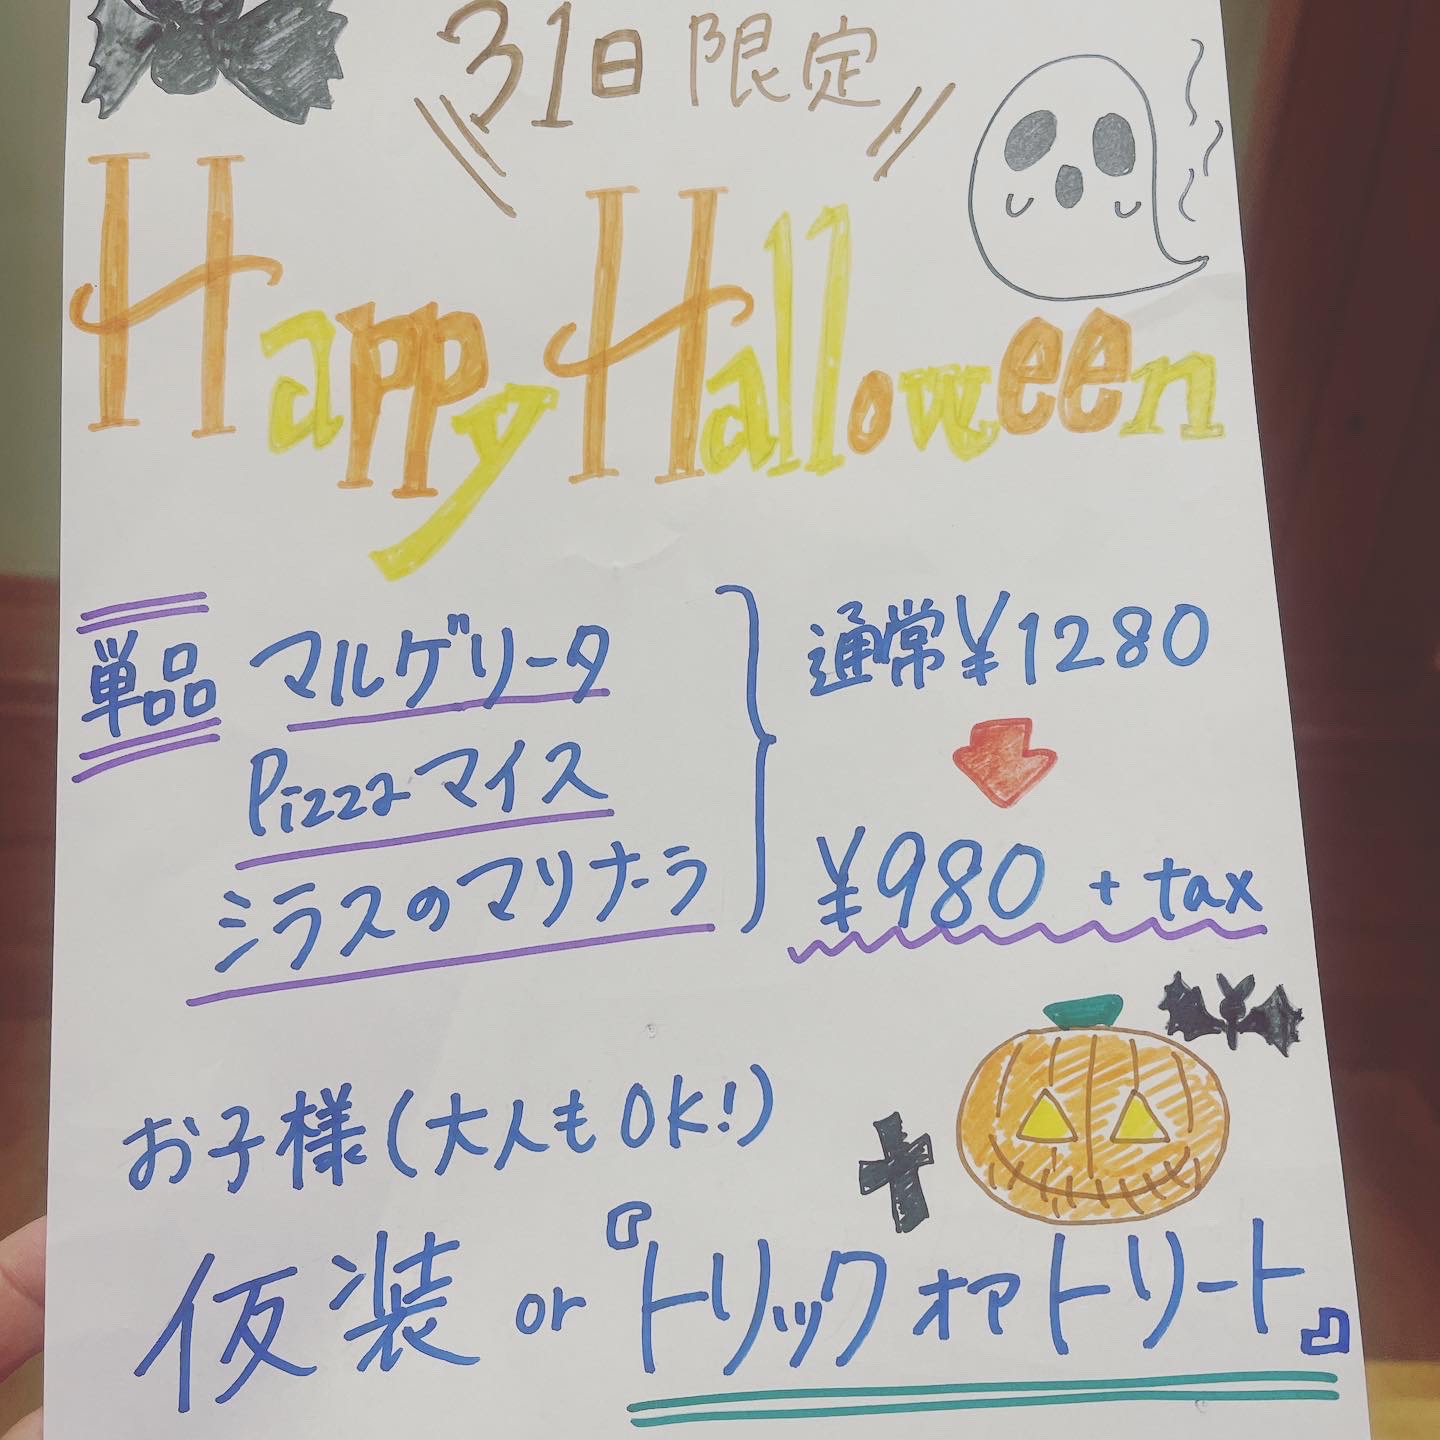 31日限定
Happy Halloween
単品 マルゲリータ
Pizzaマイス
シラスのマリナーラ
通常¥1280
¥980 + tax
お子様(大人もOK!)
仮装 or『トリックオアトリート』